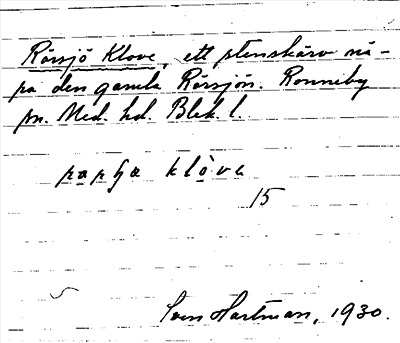 Rörsjö Klove, ett stenskärv nå-
pa den gamla Rörsjön. Ronneby
sn. Med. hd. Blek. l.
klòva
15
Sven Hartman, 1930.